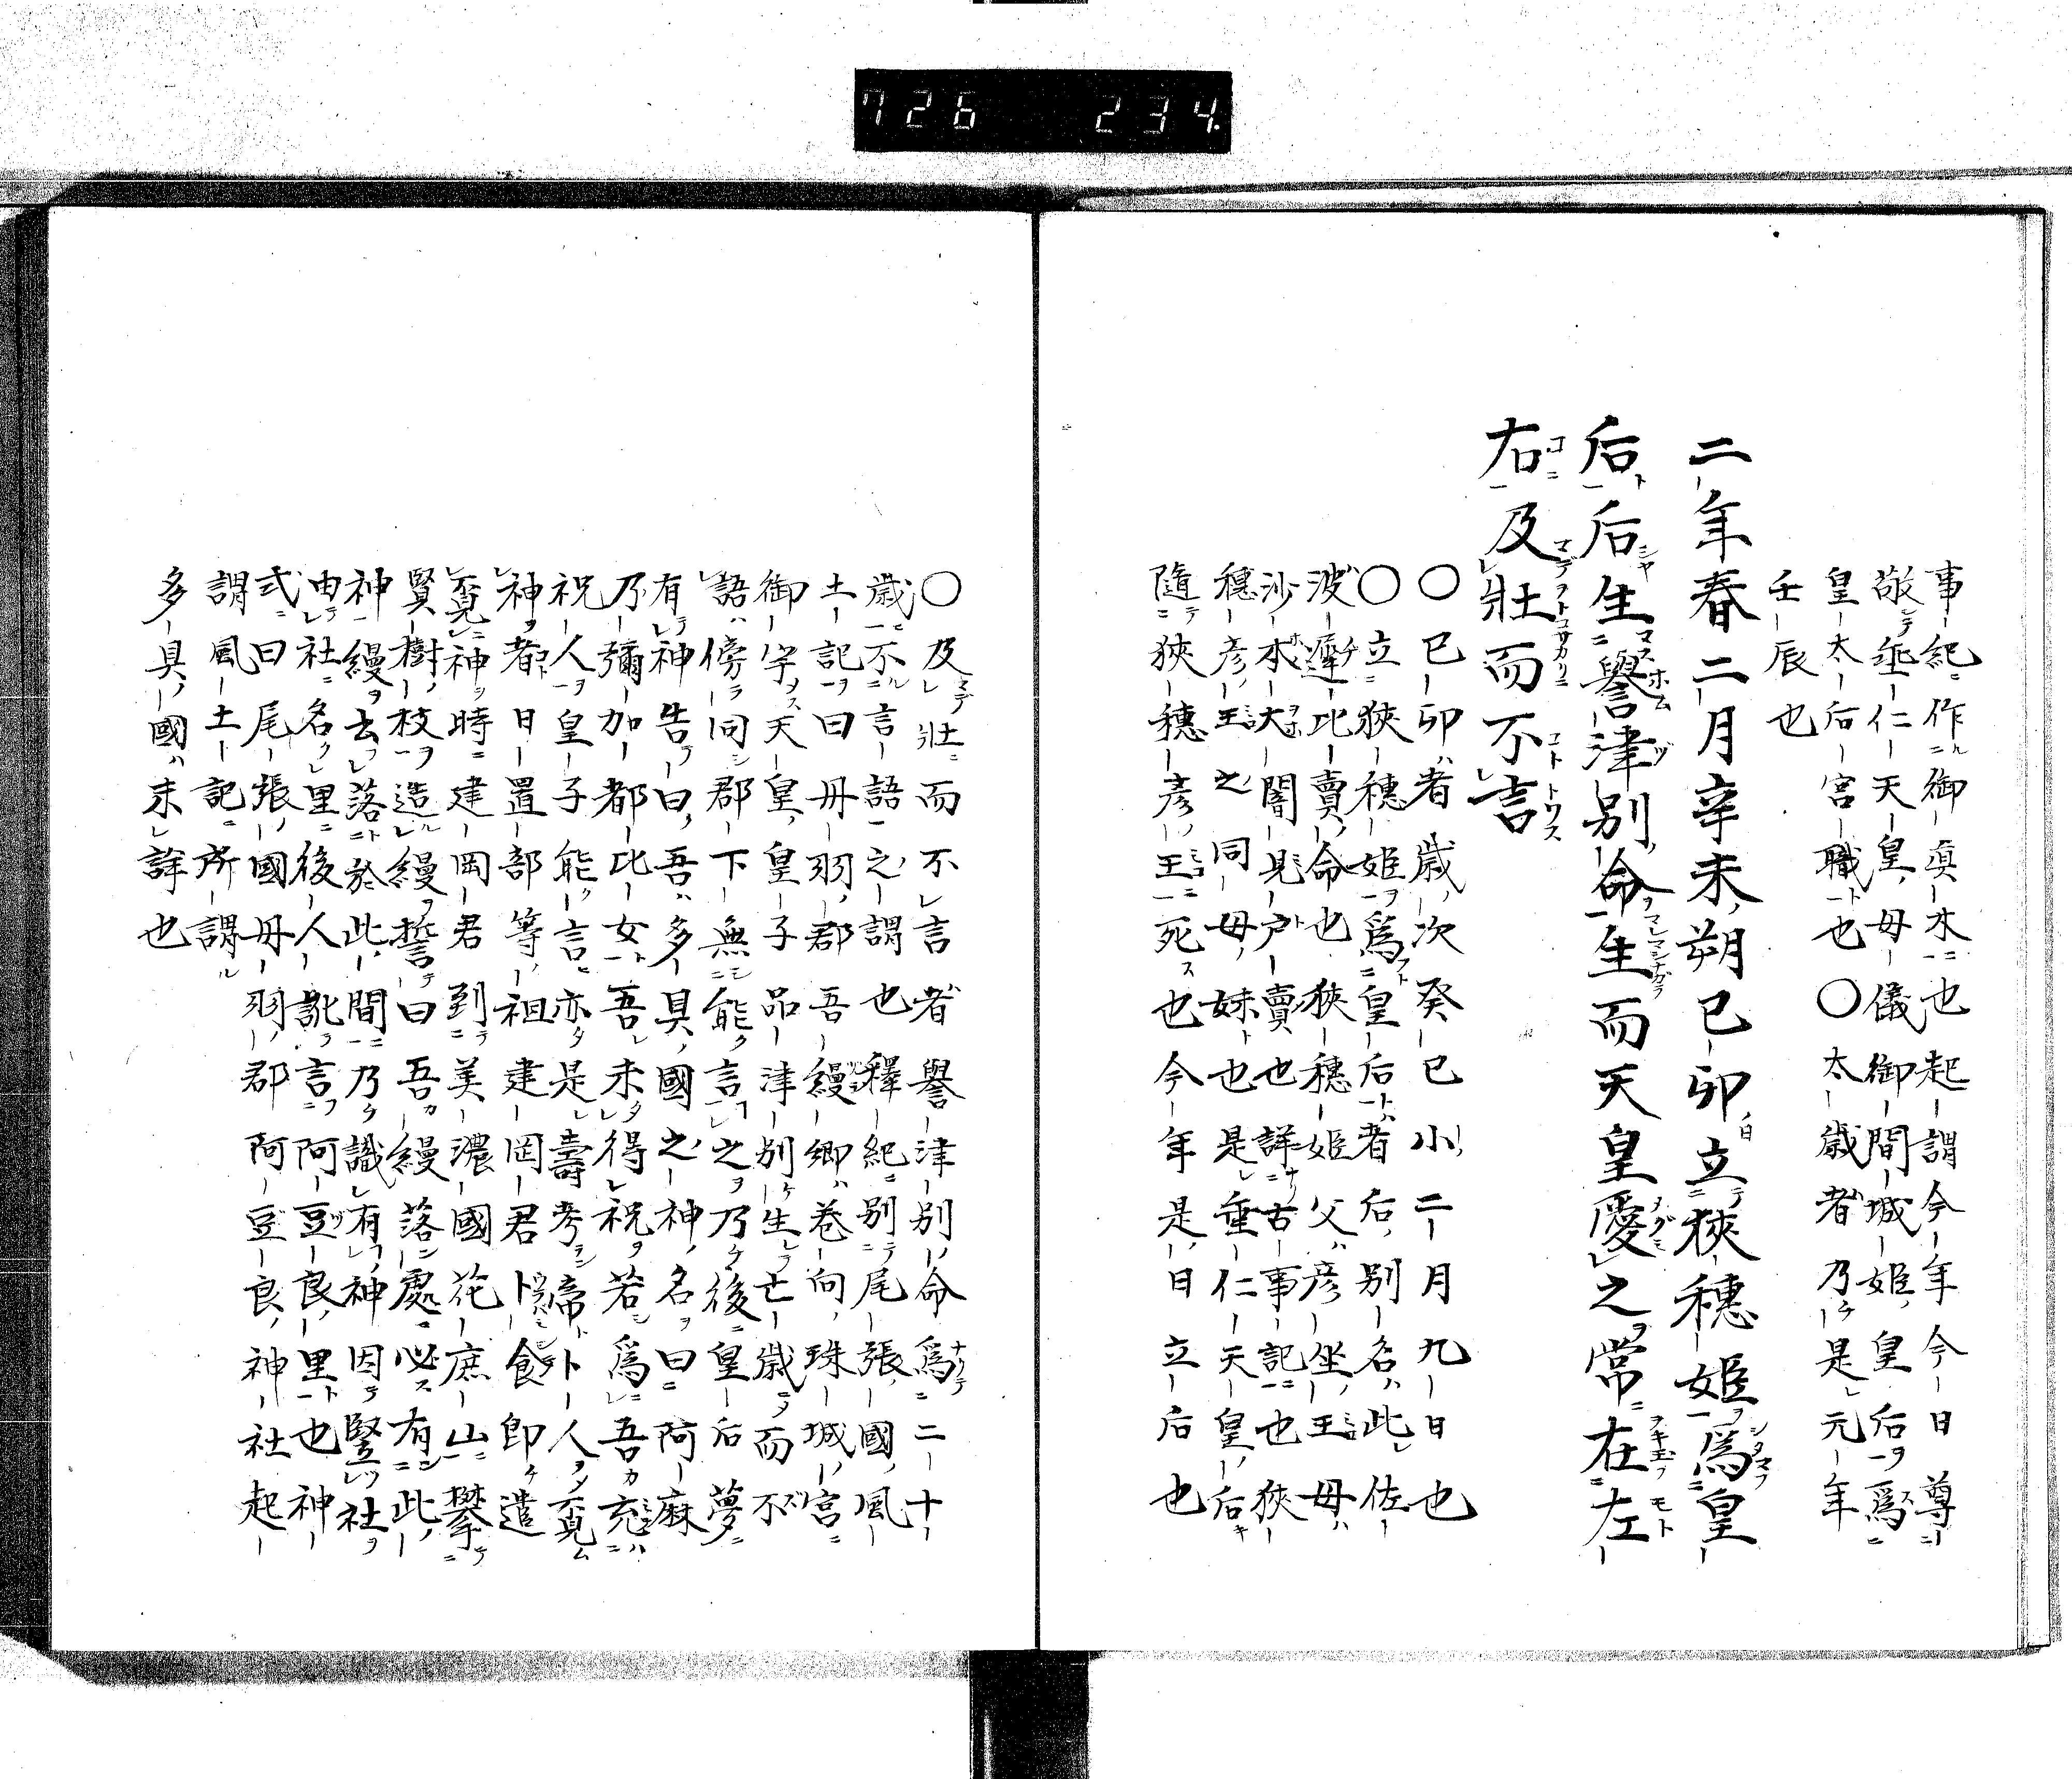 726 234
事紀作御真木也起謂今年今日尊
敬垂仁天皇母儀御間城姫皇后爲
皇太后宮職也〇太歳者乃是元年
壬辰也
二年春二月辛未朔己卯立狹穗姫爲皇
后后生譽津別命生而天皇愛之常在左
右及壯而不言
〇己卯者歳次癸巳小二月九日也
〇立狹穗姫爲皇后者后別名此佐
波遲比賣命也狹穗姫父彦坐王母
沙本大闇見戸賣也詳古事記也狹
穗彦王之同母妹也是垂仁天皇后
隨狹穗彦王死也今年是日立后也
〇及壯而不言者譽津別命爲二十
歳不言語之謂也釋紀別尾張國風
土記曰丹羽郡吾縵鄉巻向珠城宮
御宇天皇皇子品津別生亡歳而不
語傍同郡下無能言之乃後皇后夢
有神告曰吾多具國之神名曰阿麻
乃彌加都比女吾未得祝若爲吾充
祝人皇子能言亦是壽考帝卜人覔
神者日置部等祖建岡君卜食即遣
覔神時建岡君到美濃國花庶山攀
賢樹枝造縵誓曰吾縵落處必有此
神縵去落於此間乃識有神因竪社
由社名里後人訛言阿豆良里也神
式曰尾張國丹羽郡阿豆良神社起
謂風土記所謂
多具國未詳也